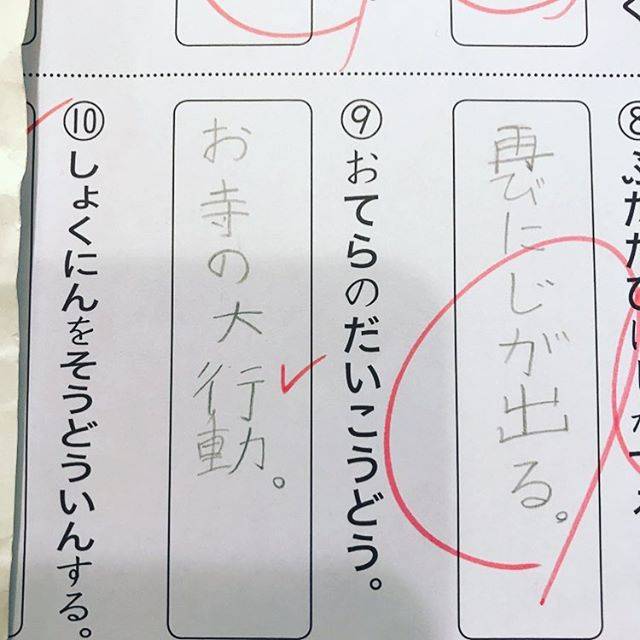 再びにじが出る。
⑨おてらのだいこうどう。
お寺の大行動。
⑩しょくにんをそうどういんする。